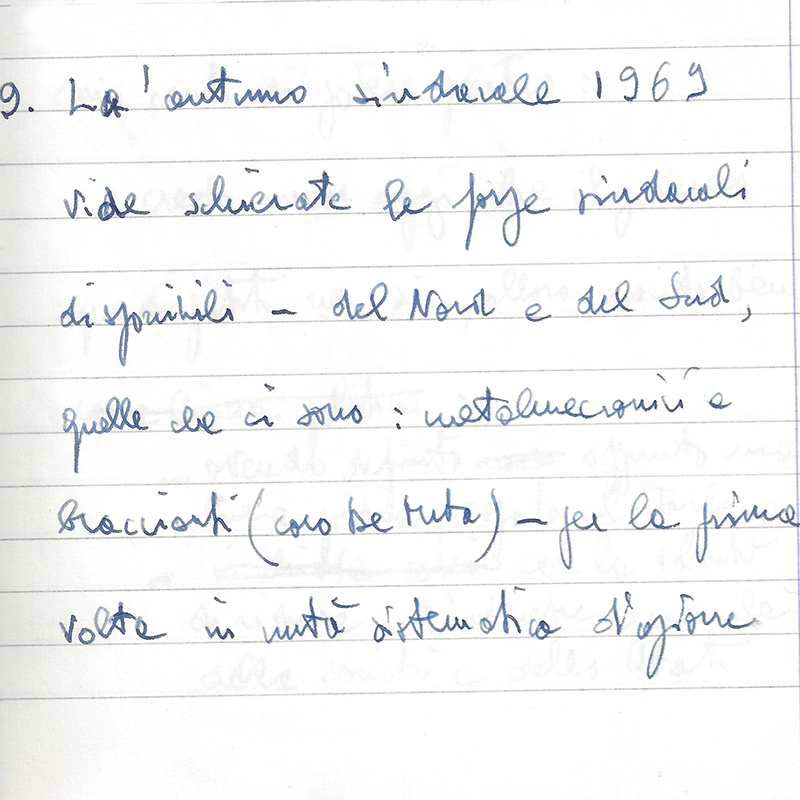 9. La' autunno sindacale 1969
vide schierate le forze sindacali
disponibili - del Nord e del Sud,
quelle che ci sono: metalmeccanici e
braccianti (caro De Rita) - per la prima
volta in unità sistematica d'azione